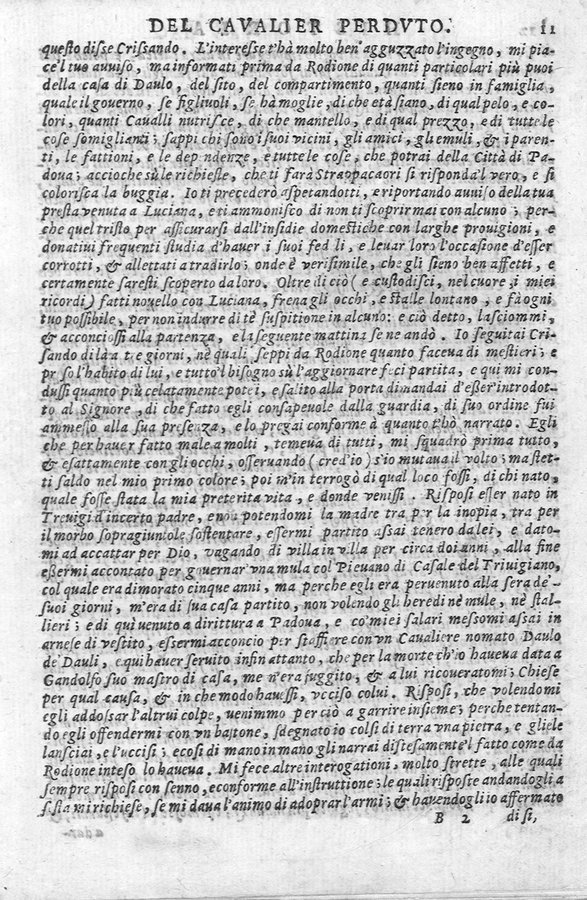 DEL CAVALIER PERDVTO. 11
questo disse Crissando. L'interesse t'hà molto ben'agguzzato l'ingegno, mi pia-
ce'l tuo auuiso, ma informati prima da Rodione di quanti particolari più puoi
della casa di Daulo, del sito, del compartimento, quanti sieno in famiglia,
quale il gouerno, se figliuoli, se hà moglie, di che età siano, di qual pelo, e co-
lori, quanti Caualli nutrisce, di che mantello, e di qual prezzo, e di tutte le
cose somiglianti; sappi chi sono i suoi vicini, gli amici, gli emuli, & i paren-
ti, le fattioni, e le dep ndenze, e tutte le cose, che potrai della Città di Pa-
doua; accioche sù le richieste, che ti farà Strappacuori si risponda'l vero, e si
colorisca la buggia. Io ti precederò aspetandotti, e riportando auuiso della tua
presta venuta a Luciana, e ti ammonisco di non ti scoprir mai con alcuno; per-
che quel tristo per assicurarsi dall'insidie domestiche con larghe prouigioni, e
donatiui frequenti studia d'hauer i suoi fed li, e leuar loro l'occasione d'esser
corrotti, & allettati a tradirlo; onde è verisimile, che gli sieno ben affetti, e
certamente saresti scoperto da loro. Oltre di ciò (e custodisci, nel cuore, i miei
ricordi) fatti nouello con Luciana, frena gli occhi, e stalle lontano, e fà ogni
tuo possibile, per non indurre di tè suspitione in alcuno: e ciò detto, lasciommi,
& acconciossi alla partenza, e la seguente mattina se ne andò. Io seguitai Cri-
sando di là a tre giorni, nè quali seppi da Rodione quanto faceua di mestieri; e
pr sol'habito di lui, e tutto'l bisogno sù l'aggiornare feci partita, e qui mi con-
dussi quanto più celatamente potei, e salito alla porta dimandai d'esser introdot-
to al Signore, di che fatto egli consapeuole dalla guardia, di suo ordine fui
ammesso alla sua presenza, e lo pregai conforme à quanto t'hò narrato. Egli
che per hauer fatto male a molti, temeua di tutti, mi squadrò prima tutto,
& esattamente con gli occhi, osseruando (cred'io) s'io mutaua il volto; ma stet-
ti saldo nel mio primo colore; poi m'interrogò di qual loco fossi, di chi nato,
quale fosse stata la mia preterita vita, e donde venissi. Risposi esser nato in
Treuigi d'incerto padre, e non potendomi la madre trà per la inopia, tra per
il morbo sopragiuntole sostentare, essermi partito assai tenero da lei, e dato-
mi ad accattar per Dio, vagando di villa in villa per circa doi anni, alla fine
eßermi accontato per gouernar vna mula col Pieuano di Casale del Triuigiano,
col quale era dimorato cinque anni, ma perche egli era peruenuto alla sera de'
suoi giorni, m'era di sua casa partito, non volendo gli heredi nè mule, nè stal-
lieri; e di qui venuto a dirittura a Padoua, e co' miei salari messomi assai in
arnese di vestito, essermi acconcio per staffiere con vn Caualiere nomato Daulo
de' Dauli, e qui hauer seruito infin attanto, che per la morte ch'io haueua data a
Gandolfo suo mastro di casa, me n'era fuggito, & a lui ricoueratomi; Chiese
per qual causa, & in che modo hauessi, vcciso colui. Risposi, che volendomi
egli addossar l'altrui colpe, uenimmo per ciò a garrire insieme; perche tentan-
do egli offendermi con vn bastone, sdegnato io colsi di terra vna pietra, e gliele
lansciai, e l'uccisi; e così di mano in mano gli narrai distesamente'l fatto come da
Rodione inteso lo haueua. Mi fece altre interogationi, molto strette, alle quali
sempre risposi con senno, e conforme all'instruttione; le quali risposte andandogli a
mi richiese, se mi daua l'animo di adoprar l'armi; & hauendogli io affermato
B 2 di si,